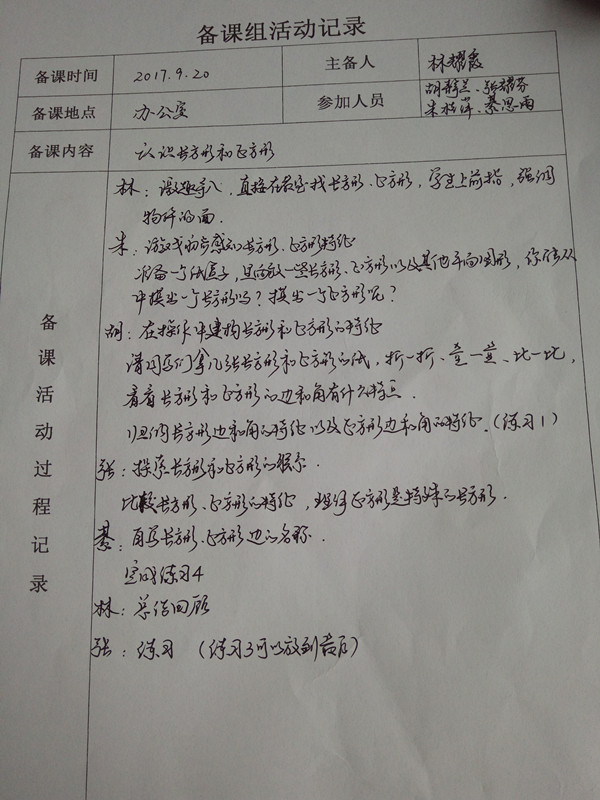 备课组活动记录
备课时间 2017.9.20 主备人 林耀霞
备课地点 办公室 参加人员 胡静兰、张耀芬
朱桂萍、綦思雨
备课内容 认识长方形和正方形
备课活动过程记录
林：激趣导入，直接在教室找长方形、正方形，学生上前指，强调
物体的面.
朱：游戏初步感知长方形、正方形特征
准备一个纸盒子，里面放一些长方形、正方形以及其他平面图形，你能从
中摸出一个长方形吗？摸出一个正方形呢？
胡：在操作中建构长方形和正方形的特征
请同学们拿几张长方形和正方形的纸，折一折、量一量、比一比，
看看长方形和正方形的边和角有什么特点.
归纳长方形边和角的特征以及正方形边和角的特征.（练习1）
张：探索长方形和正方形的联系.
比较长方形、正方形的特征，理解正方形是特殊的长方形.
綦：自写长方形、正方形边的名称.
完成练习4
林：总结回顾
张：练习 （练习3可以放到最后）